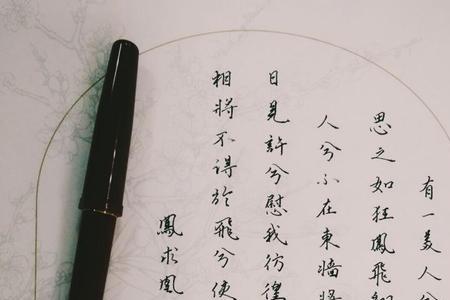 有一美人兮
思之如狂鳳飛
人兮不在東牆將
日見許兮慰我彷徨
相將不得於飛兮使
鳳求凰